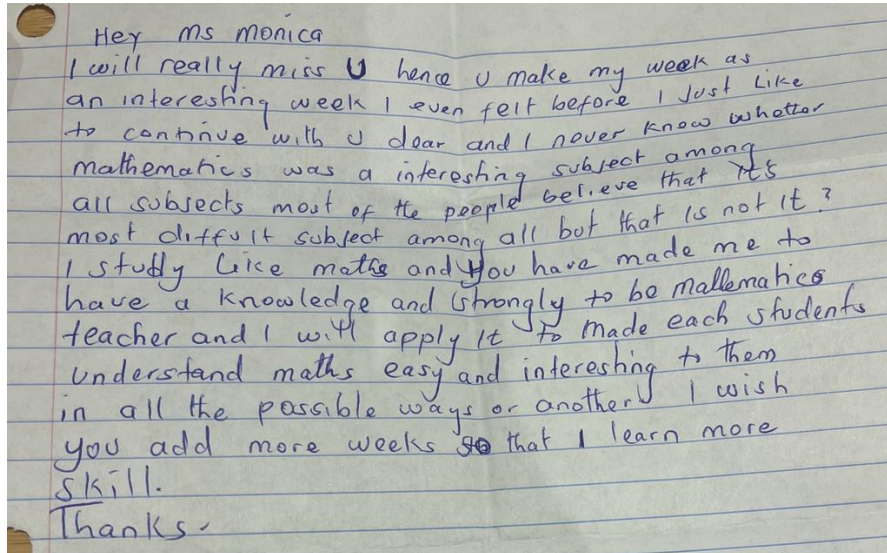 Hey ms monica
I will really miss U hence U make my week as
an interesting week I even felt before I Just Like
to continue with U dear and I never know whetter
mathematics was a interesting subject among
all subjects most of the people believe that it's
most diffult subject among all but that is not it?
I study Like maths and you have made me to
have a knowledge and strongly to be mallematics
teacher and I will apply it to made each students
Understand maths easy and interesting to them
in all the possible ways or another I wish
you add more weeks so that I learn more
skill.
Thanks.